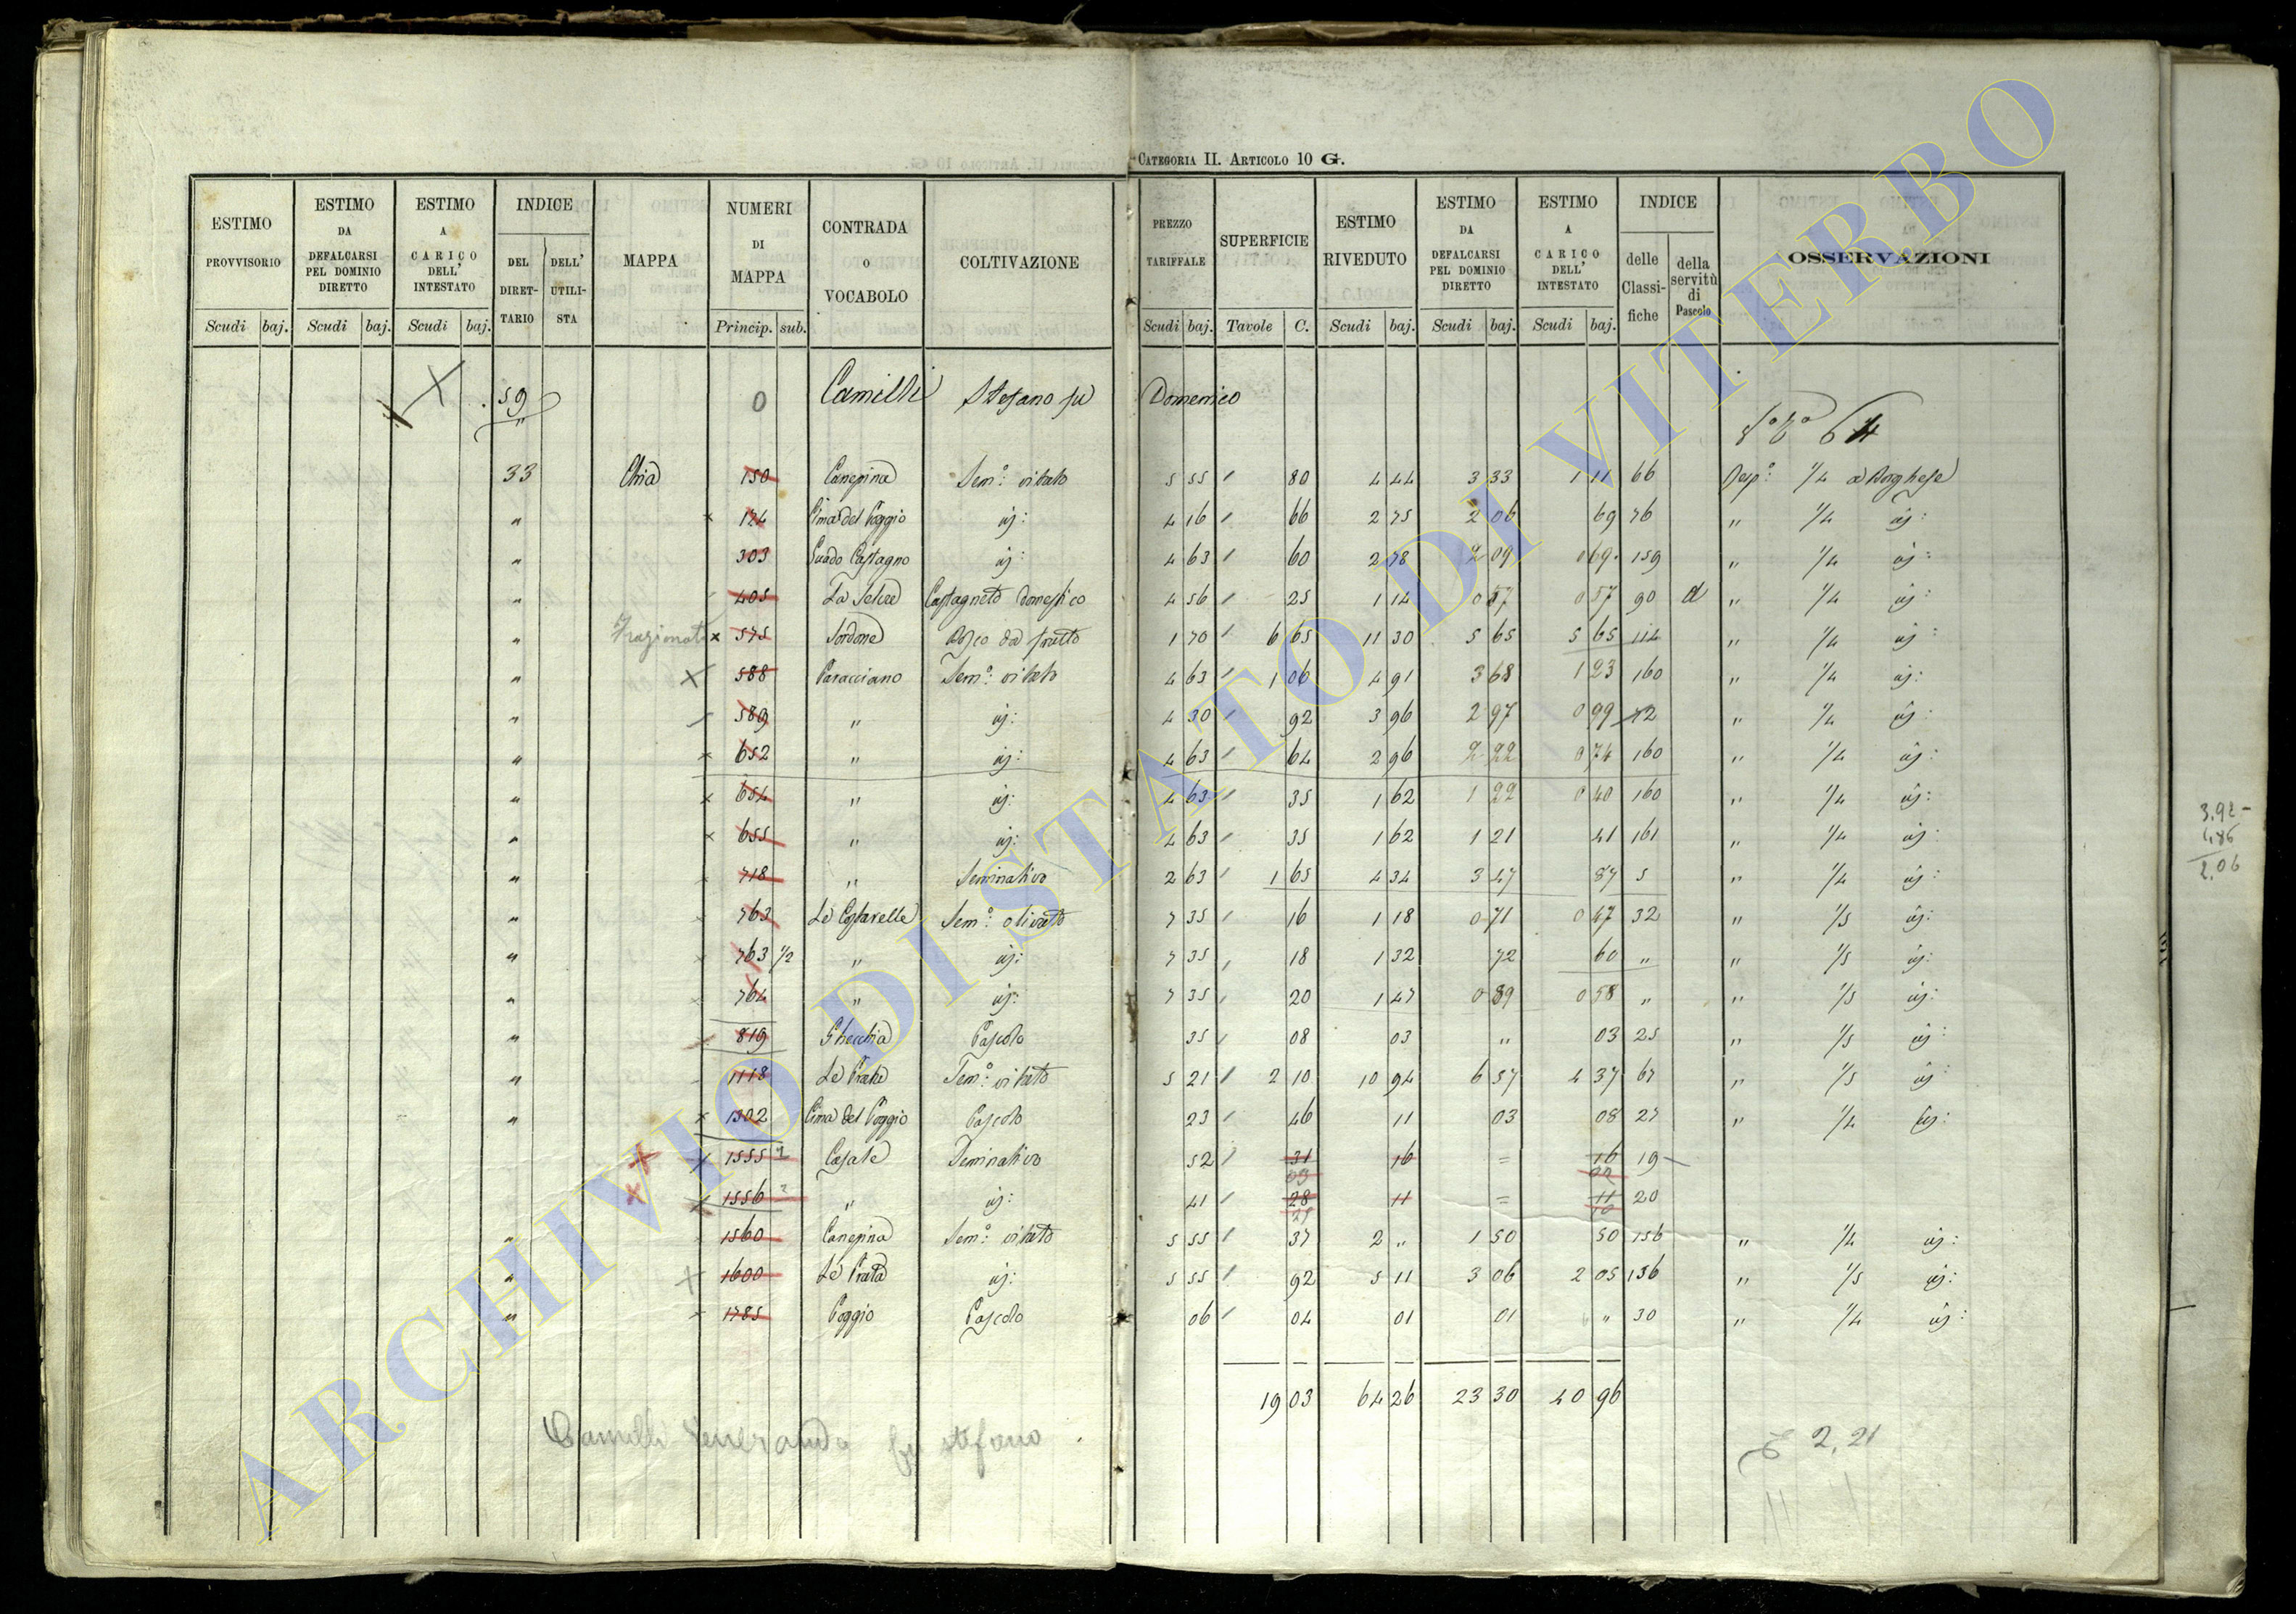 CATEGORIA II. ARTICOLO 10 G.
ESTIMO PROVVISORIO Scudi baj.
ESTIMO DA DEFALCARSI PEL DOMINIO DIRETTO Scudi baj.
ESTIMO A CARICO DELL' INTESTATO Scudi baj.
INDICE DEL DIRETTARIO DELL' UTILISTA
MAPPA
NUMERI DI MAPPA Princip. sub.
CONTRADA O VOCABOLO
COLTIVAZIONE
PREZZO TARIFFALE Scudi baj.
SUPERFICIE Tavole C.
ESTIMO RIVEDUTO Scudi baj.
ESTIMO DA DEFALCARSI PEL DOMINIO DIRETTO Scudi baj.
ESTIMO A CARICO DELL' INTESTATO Scudi baj.
INDICE delle Classifiche della servitù di Pascolo
OSSERVAZIONI
59 0 Camilli Stefano fu Domenico
64
33 Chia 150 Canepina Sem.o vitato 5 55 80 4 44 3 33 1 11 66 Risp.e 1/4 a Borghese
" 174 Cima del Poggio id: 4 16 66 2 75 2 06 69 76 " 1/4 id:
" 303 Guado Castagno id: 4 63 60 2 78 2 09 0 69 159 " 1/4 id:
" 405 La Selva Castagneto domestico 4 56 25 1 14 0 57 0 57 90 d " 1/4 id:
Frazionato x " 575 Sordone Bosco da frutto 1 70 6 65 11 30 5 65 5 65 114 " 1/4 id:
" 588 Caracciano Sem.o vitato 4 63 1 06 4 91 3 68 1 23 160 " 1/4 id:
" 589 " id: 4 30 92 3 96 2 97 0 99 72 " 1/4 id:
" 652 " id: 4 63 64 2 96 2 22 0 74 160 " 1/4 id:
" 654 " id: 4 63 35 1 62 1 22 0 40 160 " 1/4 id:
" 655 " id: 4 63 35 1 62 1 21 41 161 " 1/4 id:
" 718 " Seminativo 2 63 1 65 4 34 3 47 87 5 " 1/4 id:
" 763 Le Costarelle Sem.o olivato 7 35 16 1 18 0 71 0 47 32 " 1/5 id:
" 763 1/2 " id: 7 35 18 1 32 72 60 " " 1/5 id:
" 764 " id: 7 35 20 1 47 0 89 0 58 " " 1/5 id:
" 819 Ghecchia Pascolo 35 08 03 " 03 25 " 1/5 id:
" 1118 Le Prata Sem.o vitato 5 21 2 10 10 94 6 57 4 37 67 " 1/5 id:
" 1302 Cima del Poggio Pascolo 23 46 11 03 08 27 " 1/4 id:
x x 1555 Casale Seminativo 52 31 16 = 16 19
x x 1556 " id: 41 28 11 = 11 20
" 1560 Canepina Sem.o vitato 5 55 37 2 " 1 50 50 156 " 1/4 id:
" 1600 Le Prata id: 5 55 92 5 11 3 06 2 05 156 " 1/5 id:
" 1785 Poggio Pascolo 06 04 01 01 " 30 " 1/4 id:
19 03 64 26 23 30 40 96
Camilli Veneranda fu Stefano
2,21
3.92
1.86
2.06
ARCHIVIO DI STATO DI VITERBO